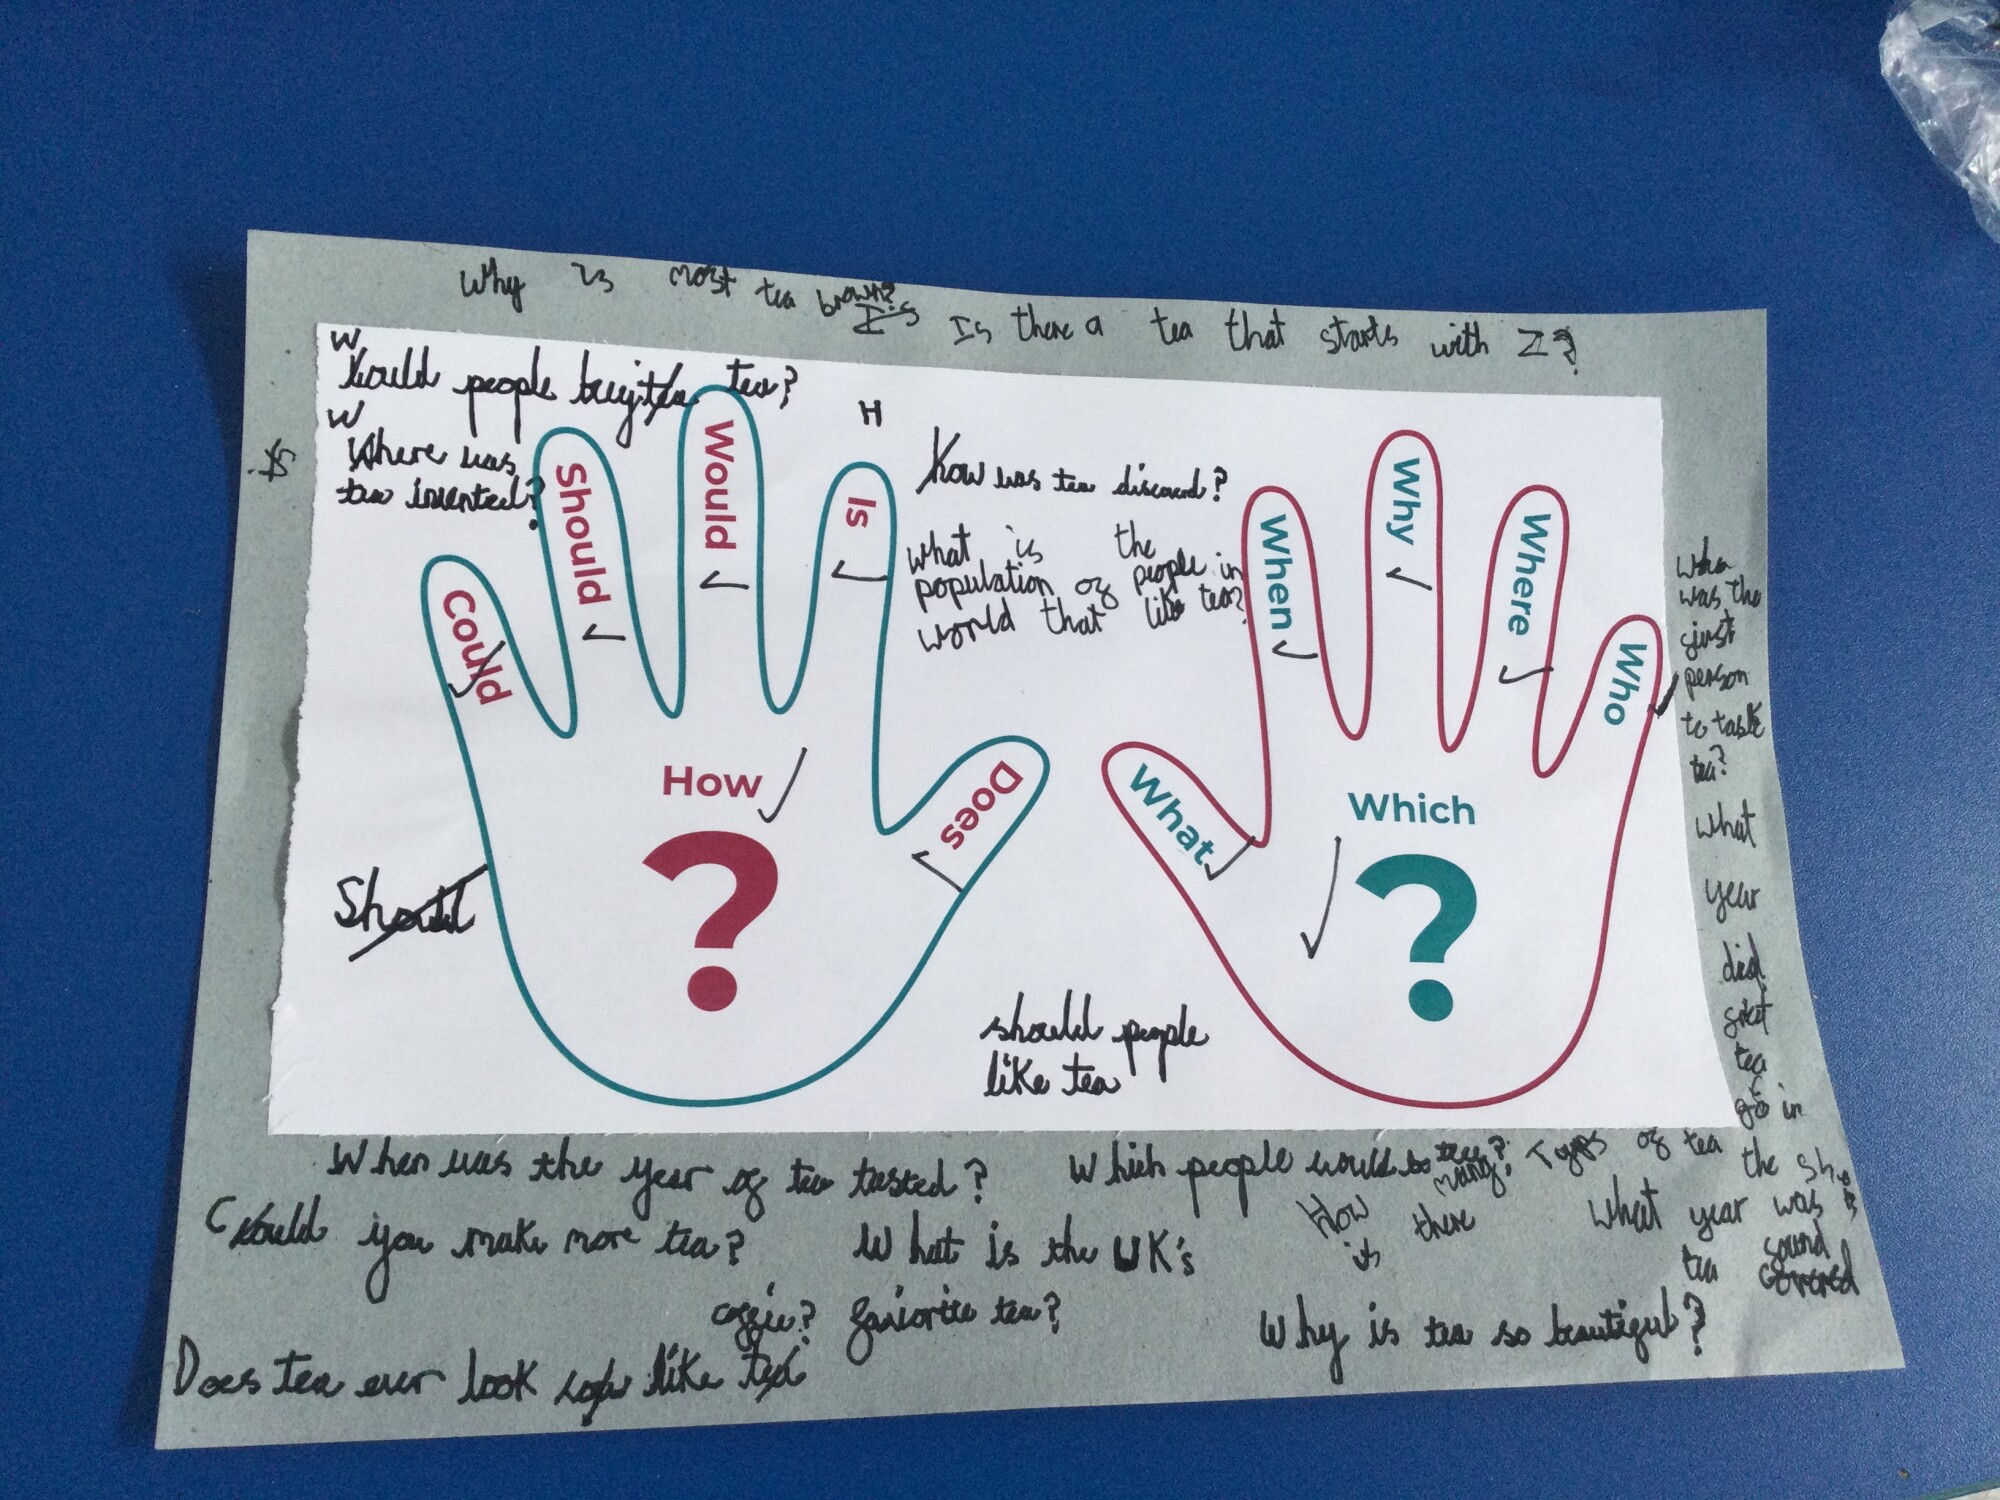 Why is most tea brown?
Is there a tea that starts with Z?
W
Would people buy tea?
W
Where was
tea invented?
is
H
How was tea discoverd?
what is the
population of people in
world that like tea?
Could
Should
Would
Is
Does
How
?
What
When
Why
Where
Who
Which
?
Should
should people
like tea
who
was the
first
person
to taste
tea?
what
year
did
first
tea
go in
the shops
When was the year of tea tasted?
Which people would
How many types of tea
is there
Could you make more tea?
What is the UK's
faviorite tea?
what year was
tea found
Why is tea so beautiful?
Does tea ever look like
coffie?